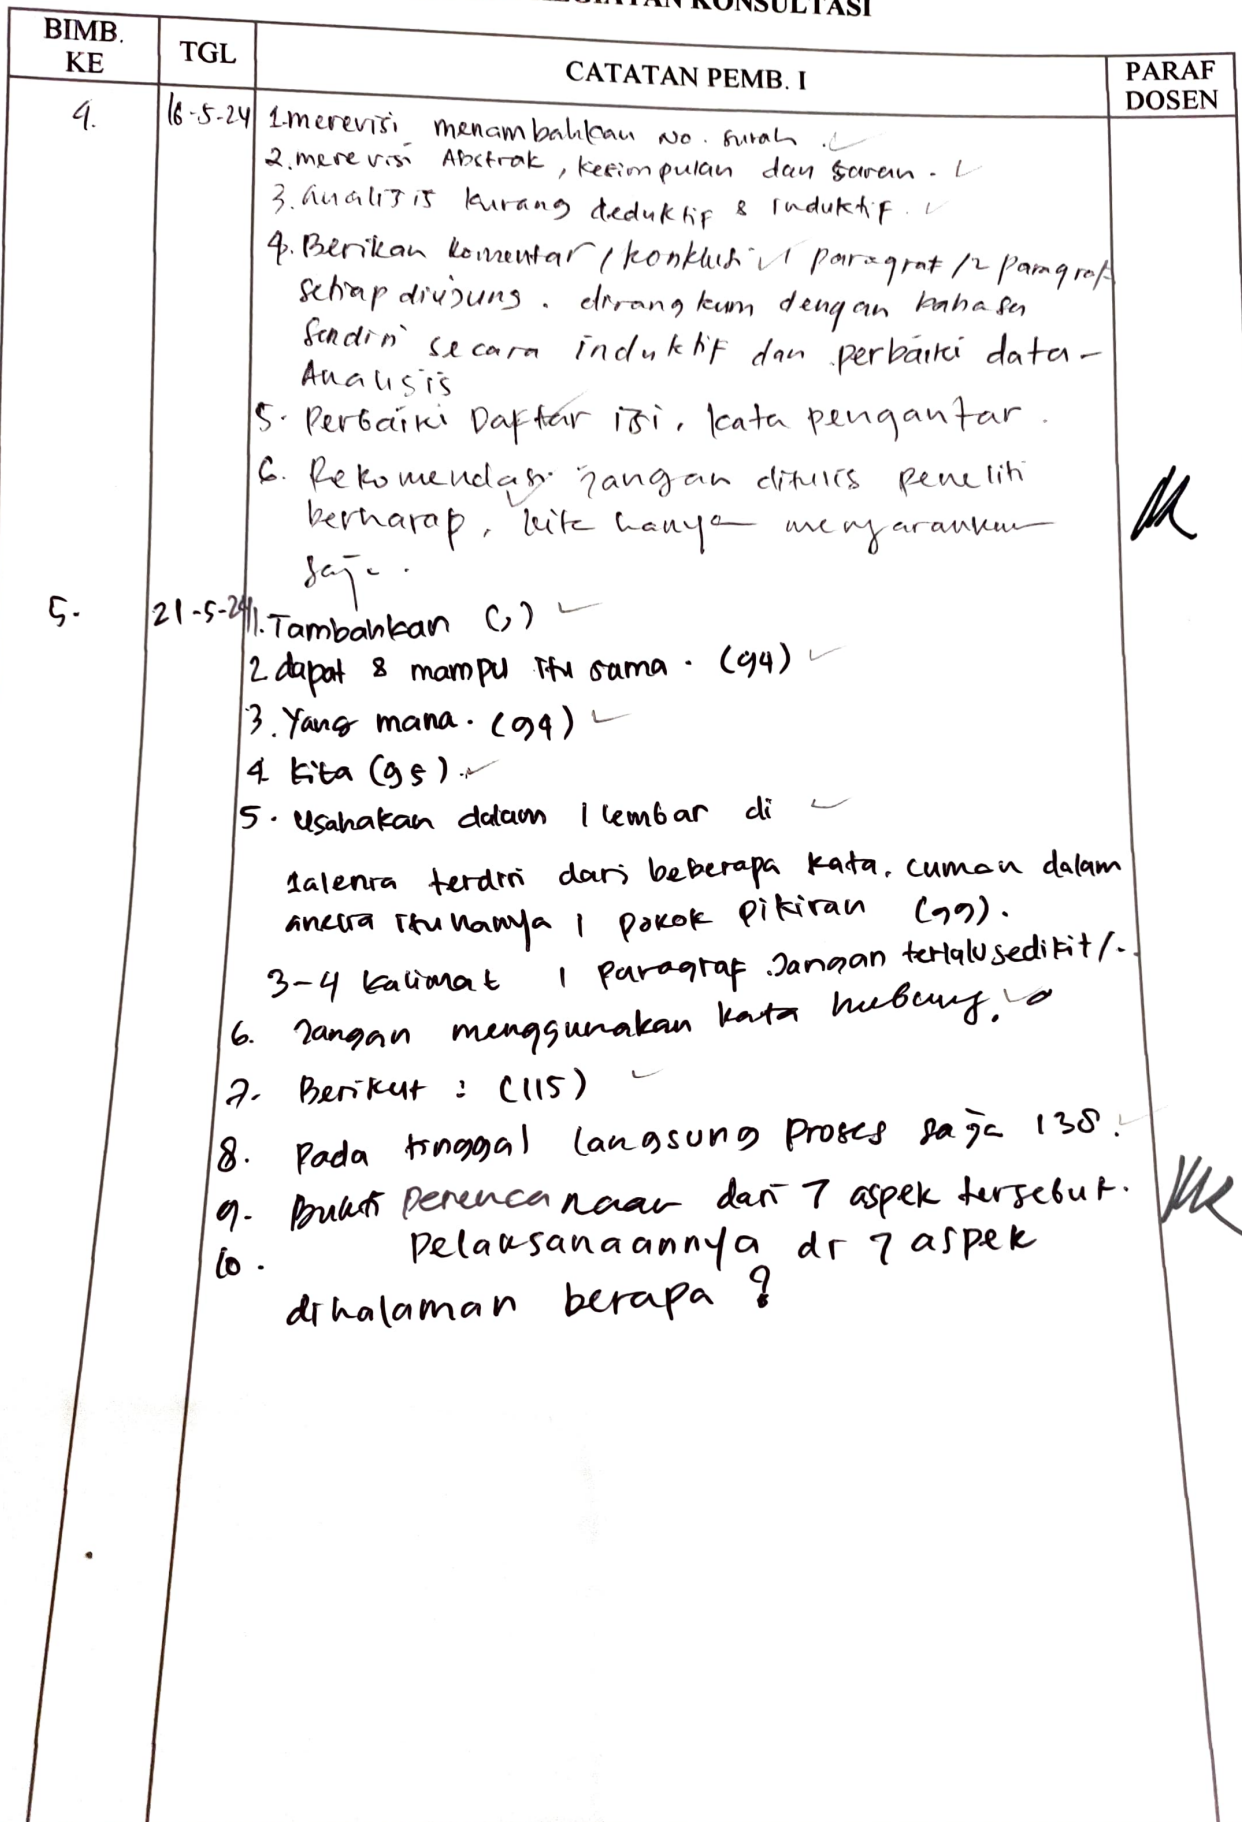 KONSULTASI
BIMB. KE
TGL
CATATAN PEMB. I
PARAF DOSEN
4.
16-5-24
1. merevisi menambahkan No. surah.
2. merevisi Abstrak, kesimpulan dan saran.
3. Analisis kurang deduktif & Induktif.
4. Berikan komentar / konklusi 1 paragraf /2 paragraf
setiap diujung. dirangkum dengan bahasa
sendiri secara induktif dan perbaiki data-
Analisis
5. Perbaiki Daftar isi, kata pengantar.
6. Rekomendasi jangan ditulis peneliti
berharap, kita hanya menyarankan
saja.
5.
21-5-24
1. Tambahkan (,)
2. dapat & mampu itu sama. (94)
3. Yang mana. (94)
4. Kita (95)
5. Usahakan dalam 1 lembar di
terdiri dari beberapa kata. cuman dalam
itu hanya 1 pokok pikiran (99).
3-4 kalimat 1 paragraf. Jangan terlalu sedikit/..
6. Jangan menggunakan kata hubung.
7. Berikut : (115)
8. Pada tinggal langsung proses saja 138.
9. Bukti perencanaan dari 7 aspek tersebut.
10. Pelaksanaannya dr 7 aspek
dihalaman berapa ?